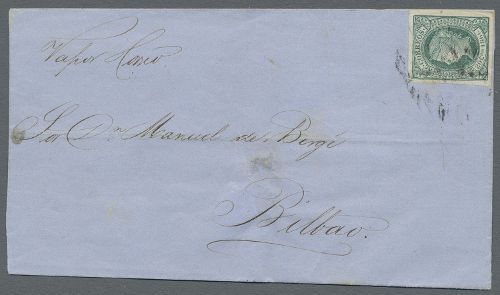 Vapor Correo
Sor Dn Manuel de Bergé
Bilbao.